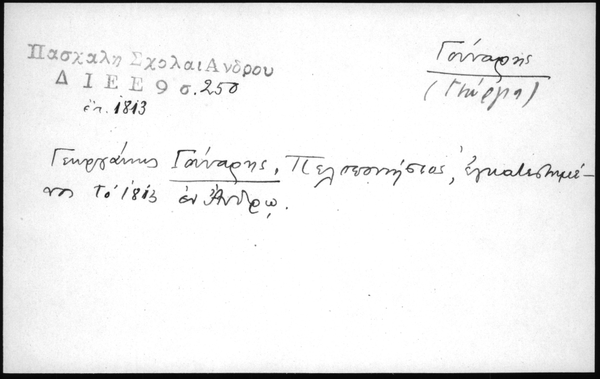 Πασχαλη Σχολαι Ανδρου
Δ Ι Ε Ε 9 σ. 250
ἔτ. 1813
Γούναρης
(Γιώργης)
Γεωργάκης Γούναρης, Πελοποννήσιος, ἐγκατεστημέ-
νος τό 1813 ἐν Ἄνδρῳ.